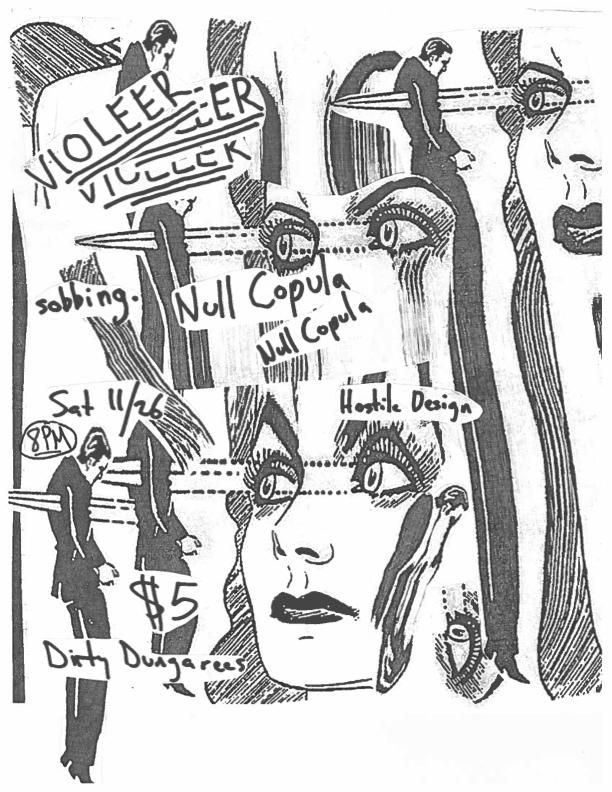 VIOLEER
VIOLEER
VIOLEER
sobbing.
Null Copula
Null Copula
Sat 11/26
8PM
Hostile Design
$5
Dirty Dungarees